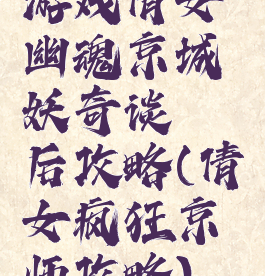 游戏倩女
幽魂京城
妖奇谈
后攻略(倩
女疯狂京
师攻略)